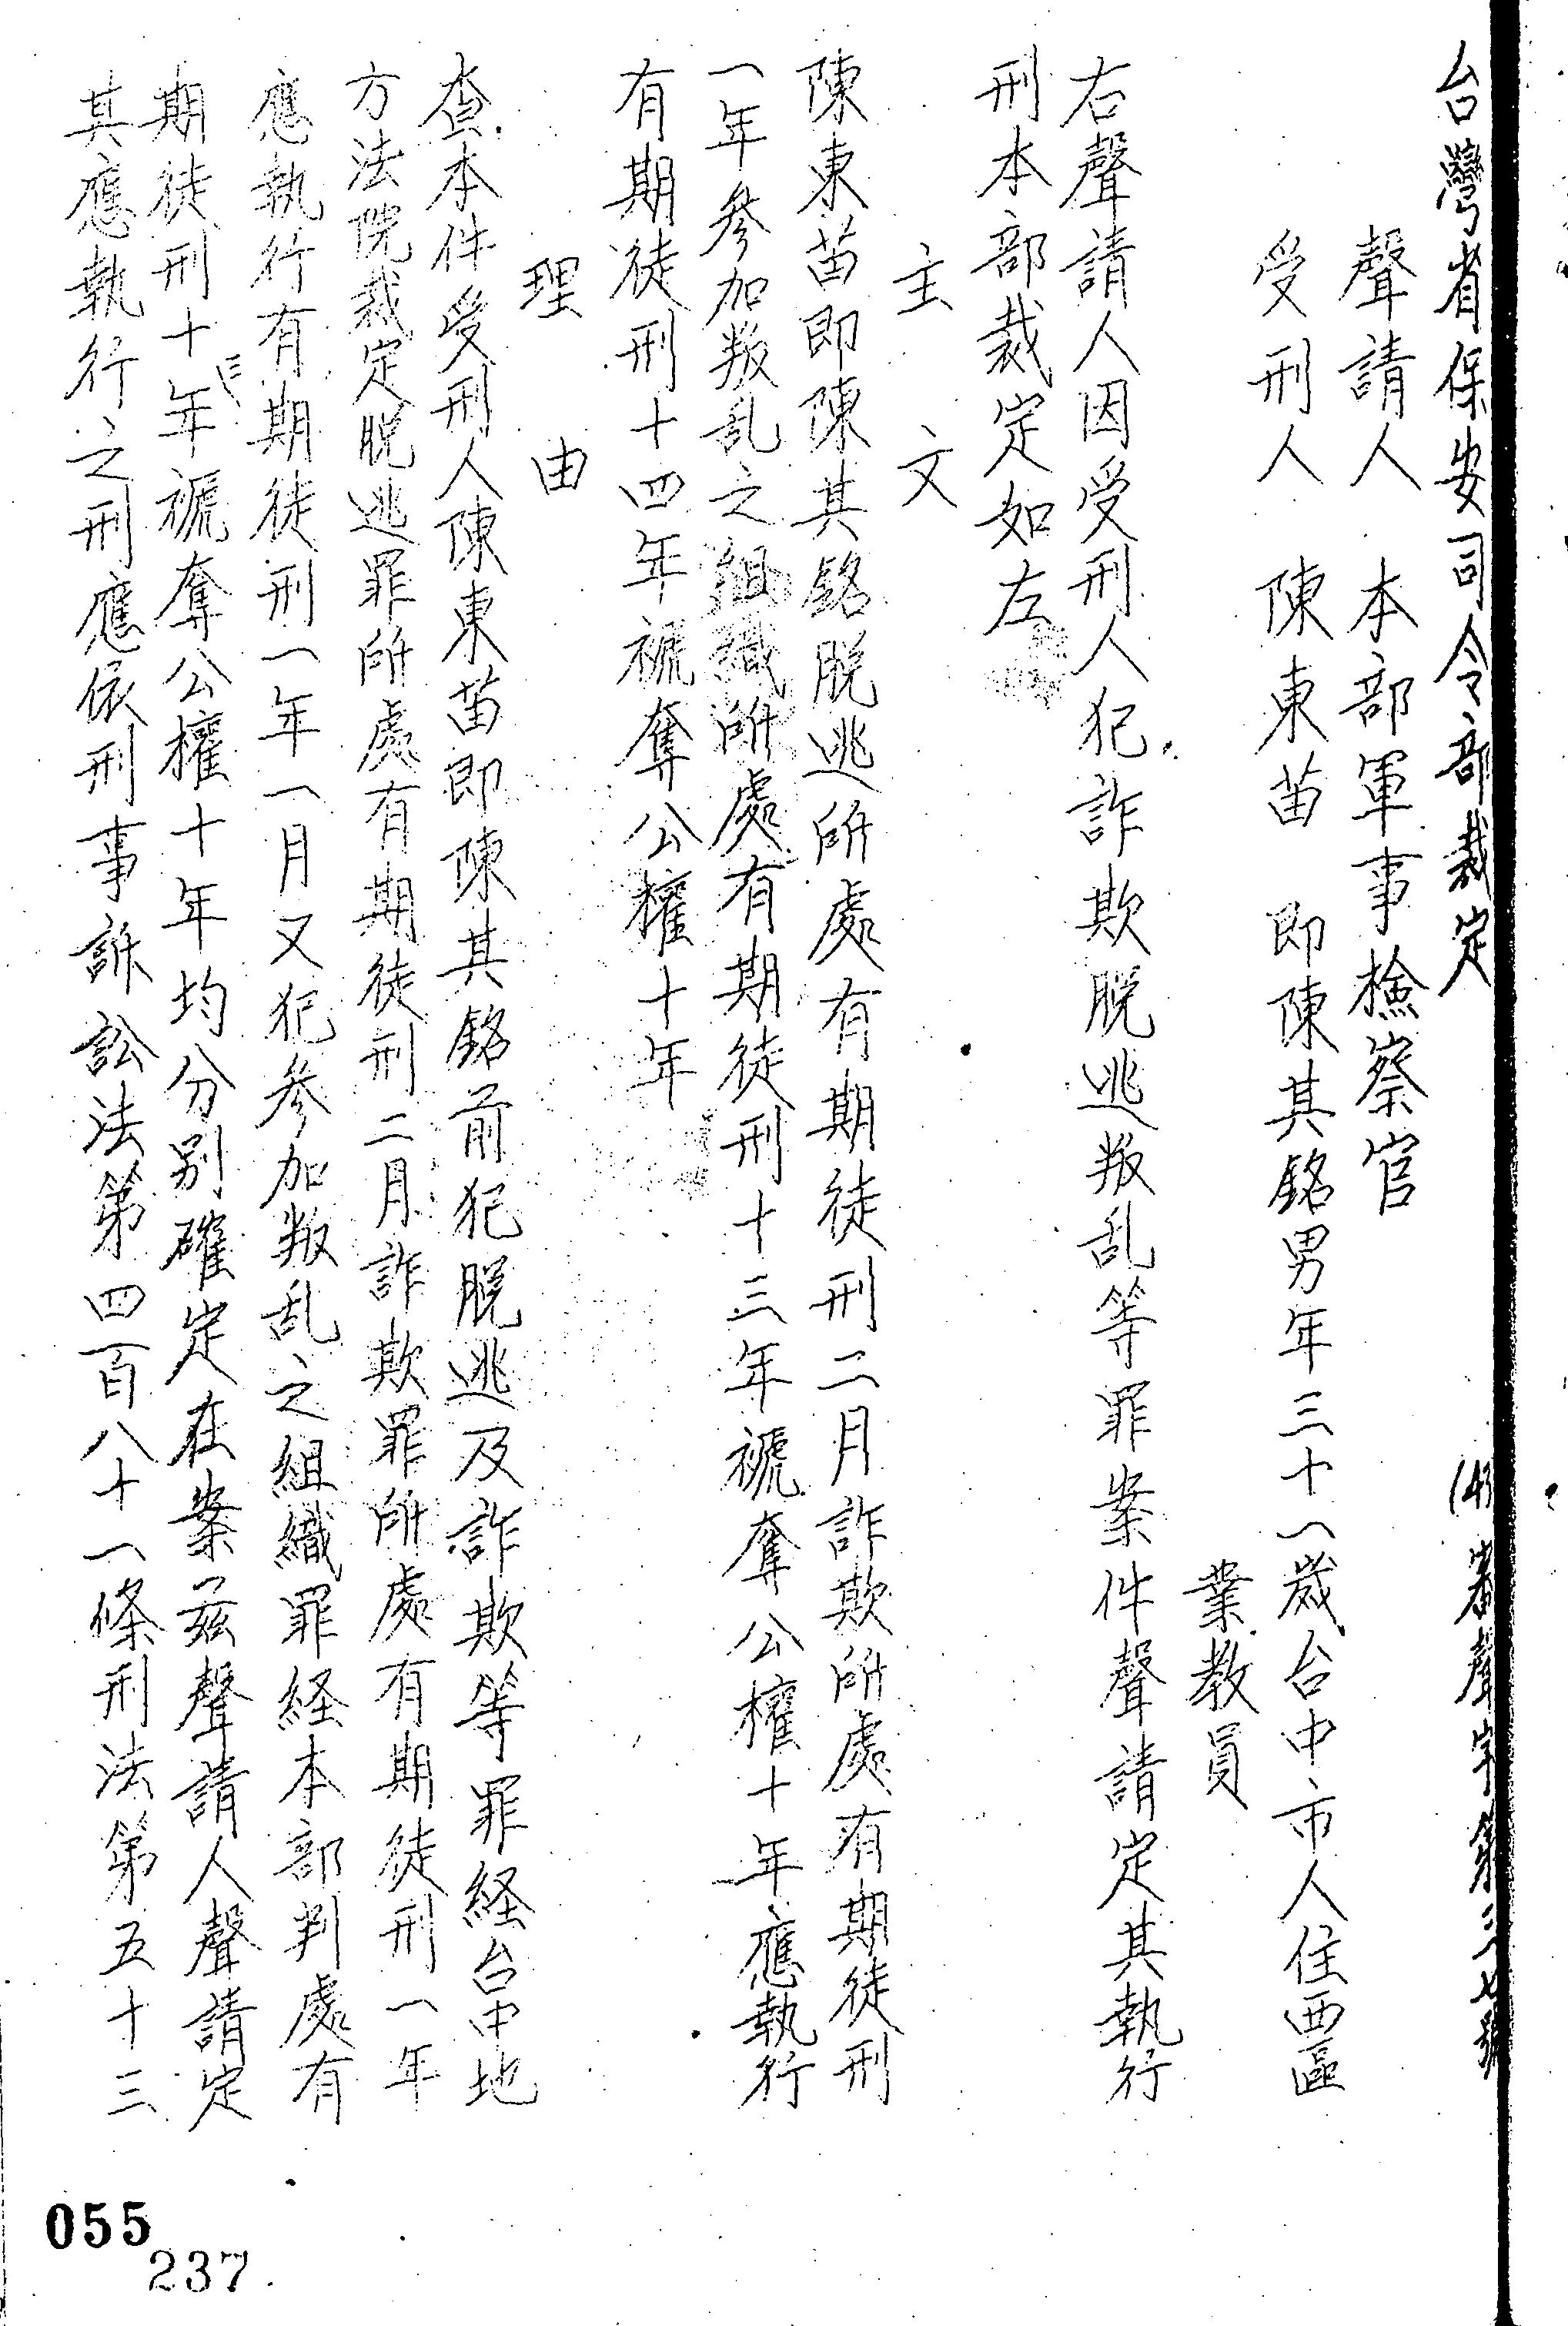 台灣省保安司令部裁定
(43)審聲字第三七號
聲請人　本部軍事檢察官
受刑人　陳東苗　即陳其銘男年三十一歲台中市人住西區
業教員
右聲請人因受刑人犯詐欺脫逃叛乱等罪案件聲請定其執行
刑本部裁定如左
主　文
陳東苗即陳其銘脫逃所處有期徒刑二月詐欺所處有期徒刑
一年參加叛乱之組織所處有期徒刑十三年褫奪公權十年應執行
有期徒刑十四年褫奪公權十年
理　由
查本件受刑人陳東苗即陳其銘前犯脫逃及詐欺等罪経台中地
方法院裁定脫逃罪所處有期徒刑二月詐欺罪所處有期徒刑一年
應執行有期徒刑一年一月又犯參加叛乱之組織罪経本部判處有
期徒刑十三年褫奪公權十年均分別確定在案茲聲請人聲請定
其應執行之刑應依刑事訴訟法第四百八十一條刑法第五十三
055
237